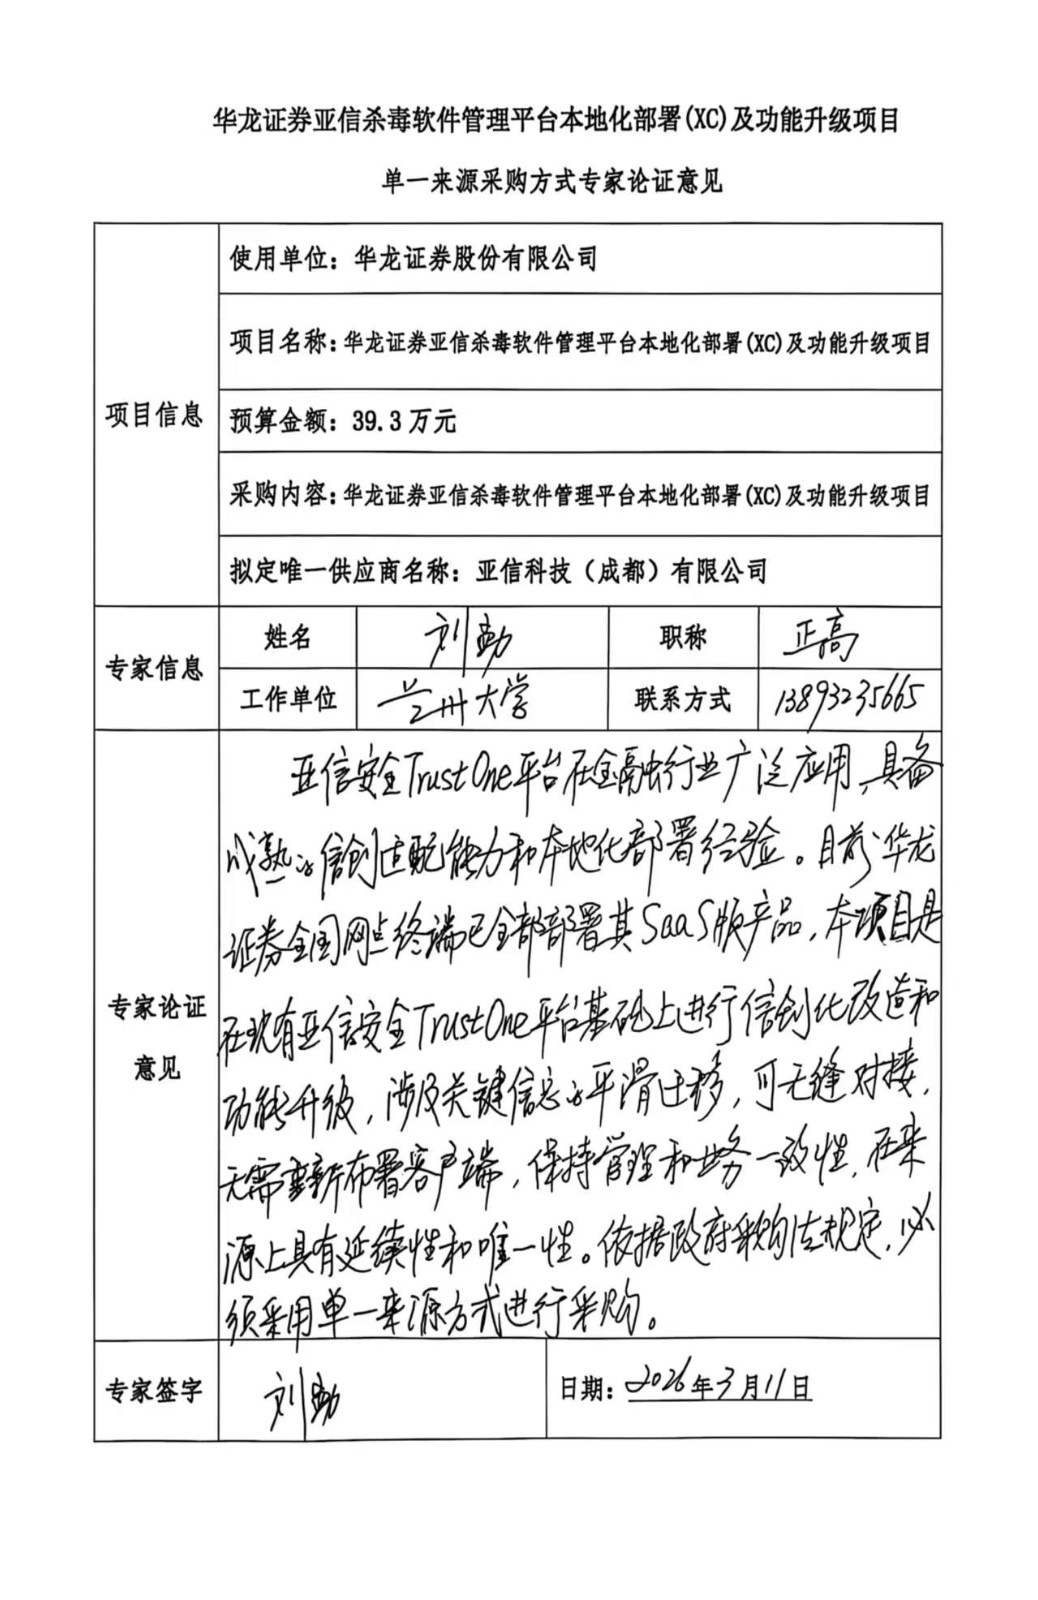 华龙证券亚信杀毒软件管理平台本地化部署(XC)及功能升级项目
单一来源采购方式专家论证意见
项目信息
使用单位：华龙证券股份有限公司
项目名称：华龙证券亚信杀毒软件管理平台本地化部署(XC)及功能升级项目
预算金额：39.3万元
采购内容：华龙证券亚信杀毒软件管理平台本地化部署(XC)及功能升级项目
拟定唯一供应商名称：亚信科技（成都）有限公司
专家信息
姓名 刘勤 职称 正高
工作单位 兰州大学 联系方式 13893235665
专家论证
意见
亚信安全TrustOne平台在金融行业广泛应用，具备
成熟的信创适配能力和本地化部署经验。目前，华龙
证券全国网点终端已全部部署其SaaS版产品，本项目是
在现有亚信安全TrustOne平台基础上进行信创化改造和
功能升级，涉及关键信息的平滑迁移，可无缝对接，
无需重新布署客户端，保持管理和业务一致性，在来
源上具有延续性和唯一性。依据政府采购法规定，必
须采用单一来源方式进行采购。
专家签字 刘勤 日期：2026年3月11日